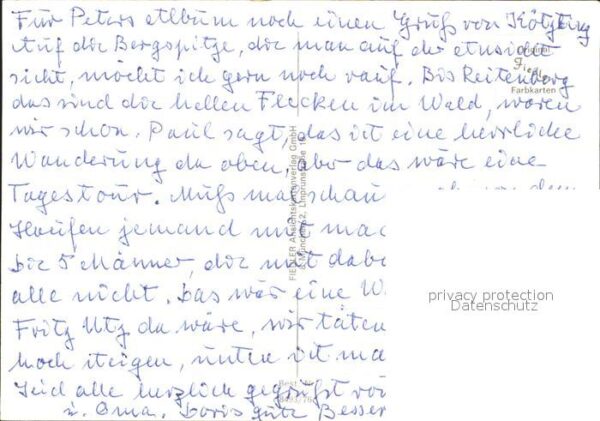 Für Peters Album noch einen Gruß von Kötzting
Auf die Bergspitze, die man auf der Ansicht
sieht, möcht ich gern noch rauf. Bis Reitenberg
das sind die hellen Flecken im Wald, waren
wir schon. Paul sagt, das ist eine herrliche
Wanderung da oben, aber das wäre eine
Tagestour. Muß mal schau
Haufen jemand mit mac
Die 5 Männer, die mit dabe
alle nicht. Das wär eine W
Fritz Utz da wäre, wir täten
hoch steigen, unten ist ma
Seid alle herzlich gegrüßt vo
u. Oma. Doris gute Besser
Fiedler
Farbkarten
FIEDLER Ansichtskartenverlag GmbH
8 München 2, Linprunstraße 16
Best.
privacy protection
Datenschutz